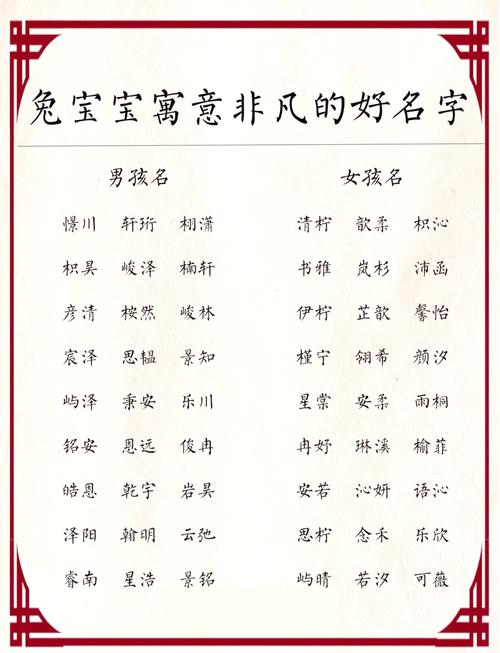 兔宝宝寓意非凡的好名字
男孩名 女孩名
憬川 轩珩 栩潇 清柠 歆柔 枳沁
枳昊 峻泽 楠轩 书雅 岚杉 沛函
彦清 桉然 峻林 伊柠 芷歆 馨怡
宸泽 思韫 景知 槿宁 翎希 颜汐
屿泽 秉安 乐川 星棠 安柔 雨桐
铭安 恩远 俊冉 冉妤 琳溪 榆菲
皓恩 乾宇 岩昊 安若 沁妍 语沁
泽阳 翰明 云弛 思柠 念禾 乐欣
睿南 星浩 景铭 屿晴 若汐 可薇